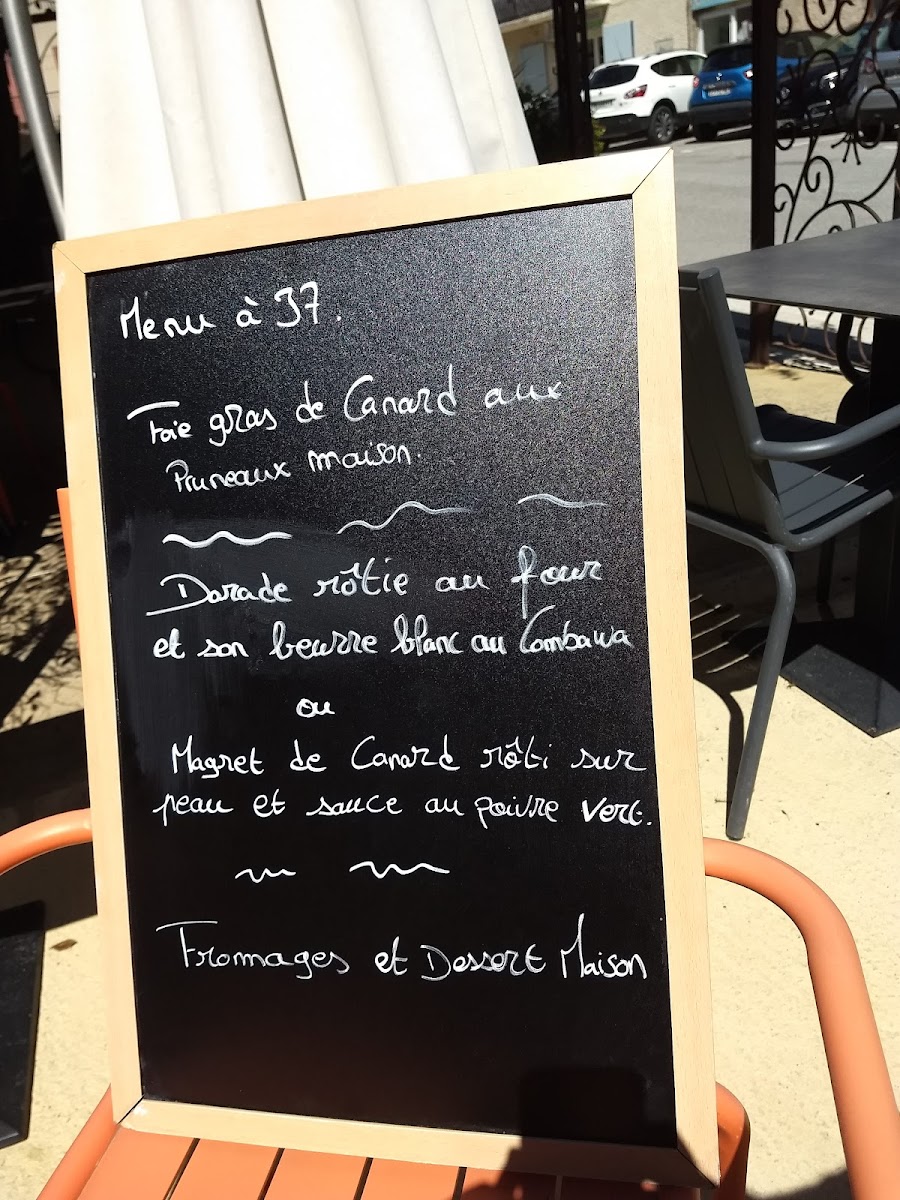 Menu à 37.
Foie gras de Canard aux
Pruneaux maison.
Darade rôtie au four
et son beurre blanc au Combawa
ou
Magret de Canard rôti sur
peau et sauce au poivre vert.
Fromages et Dessert Maison